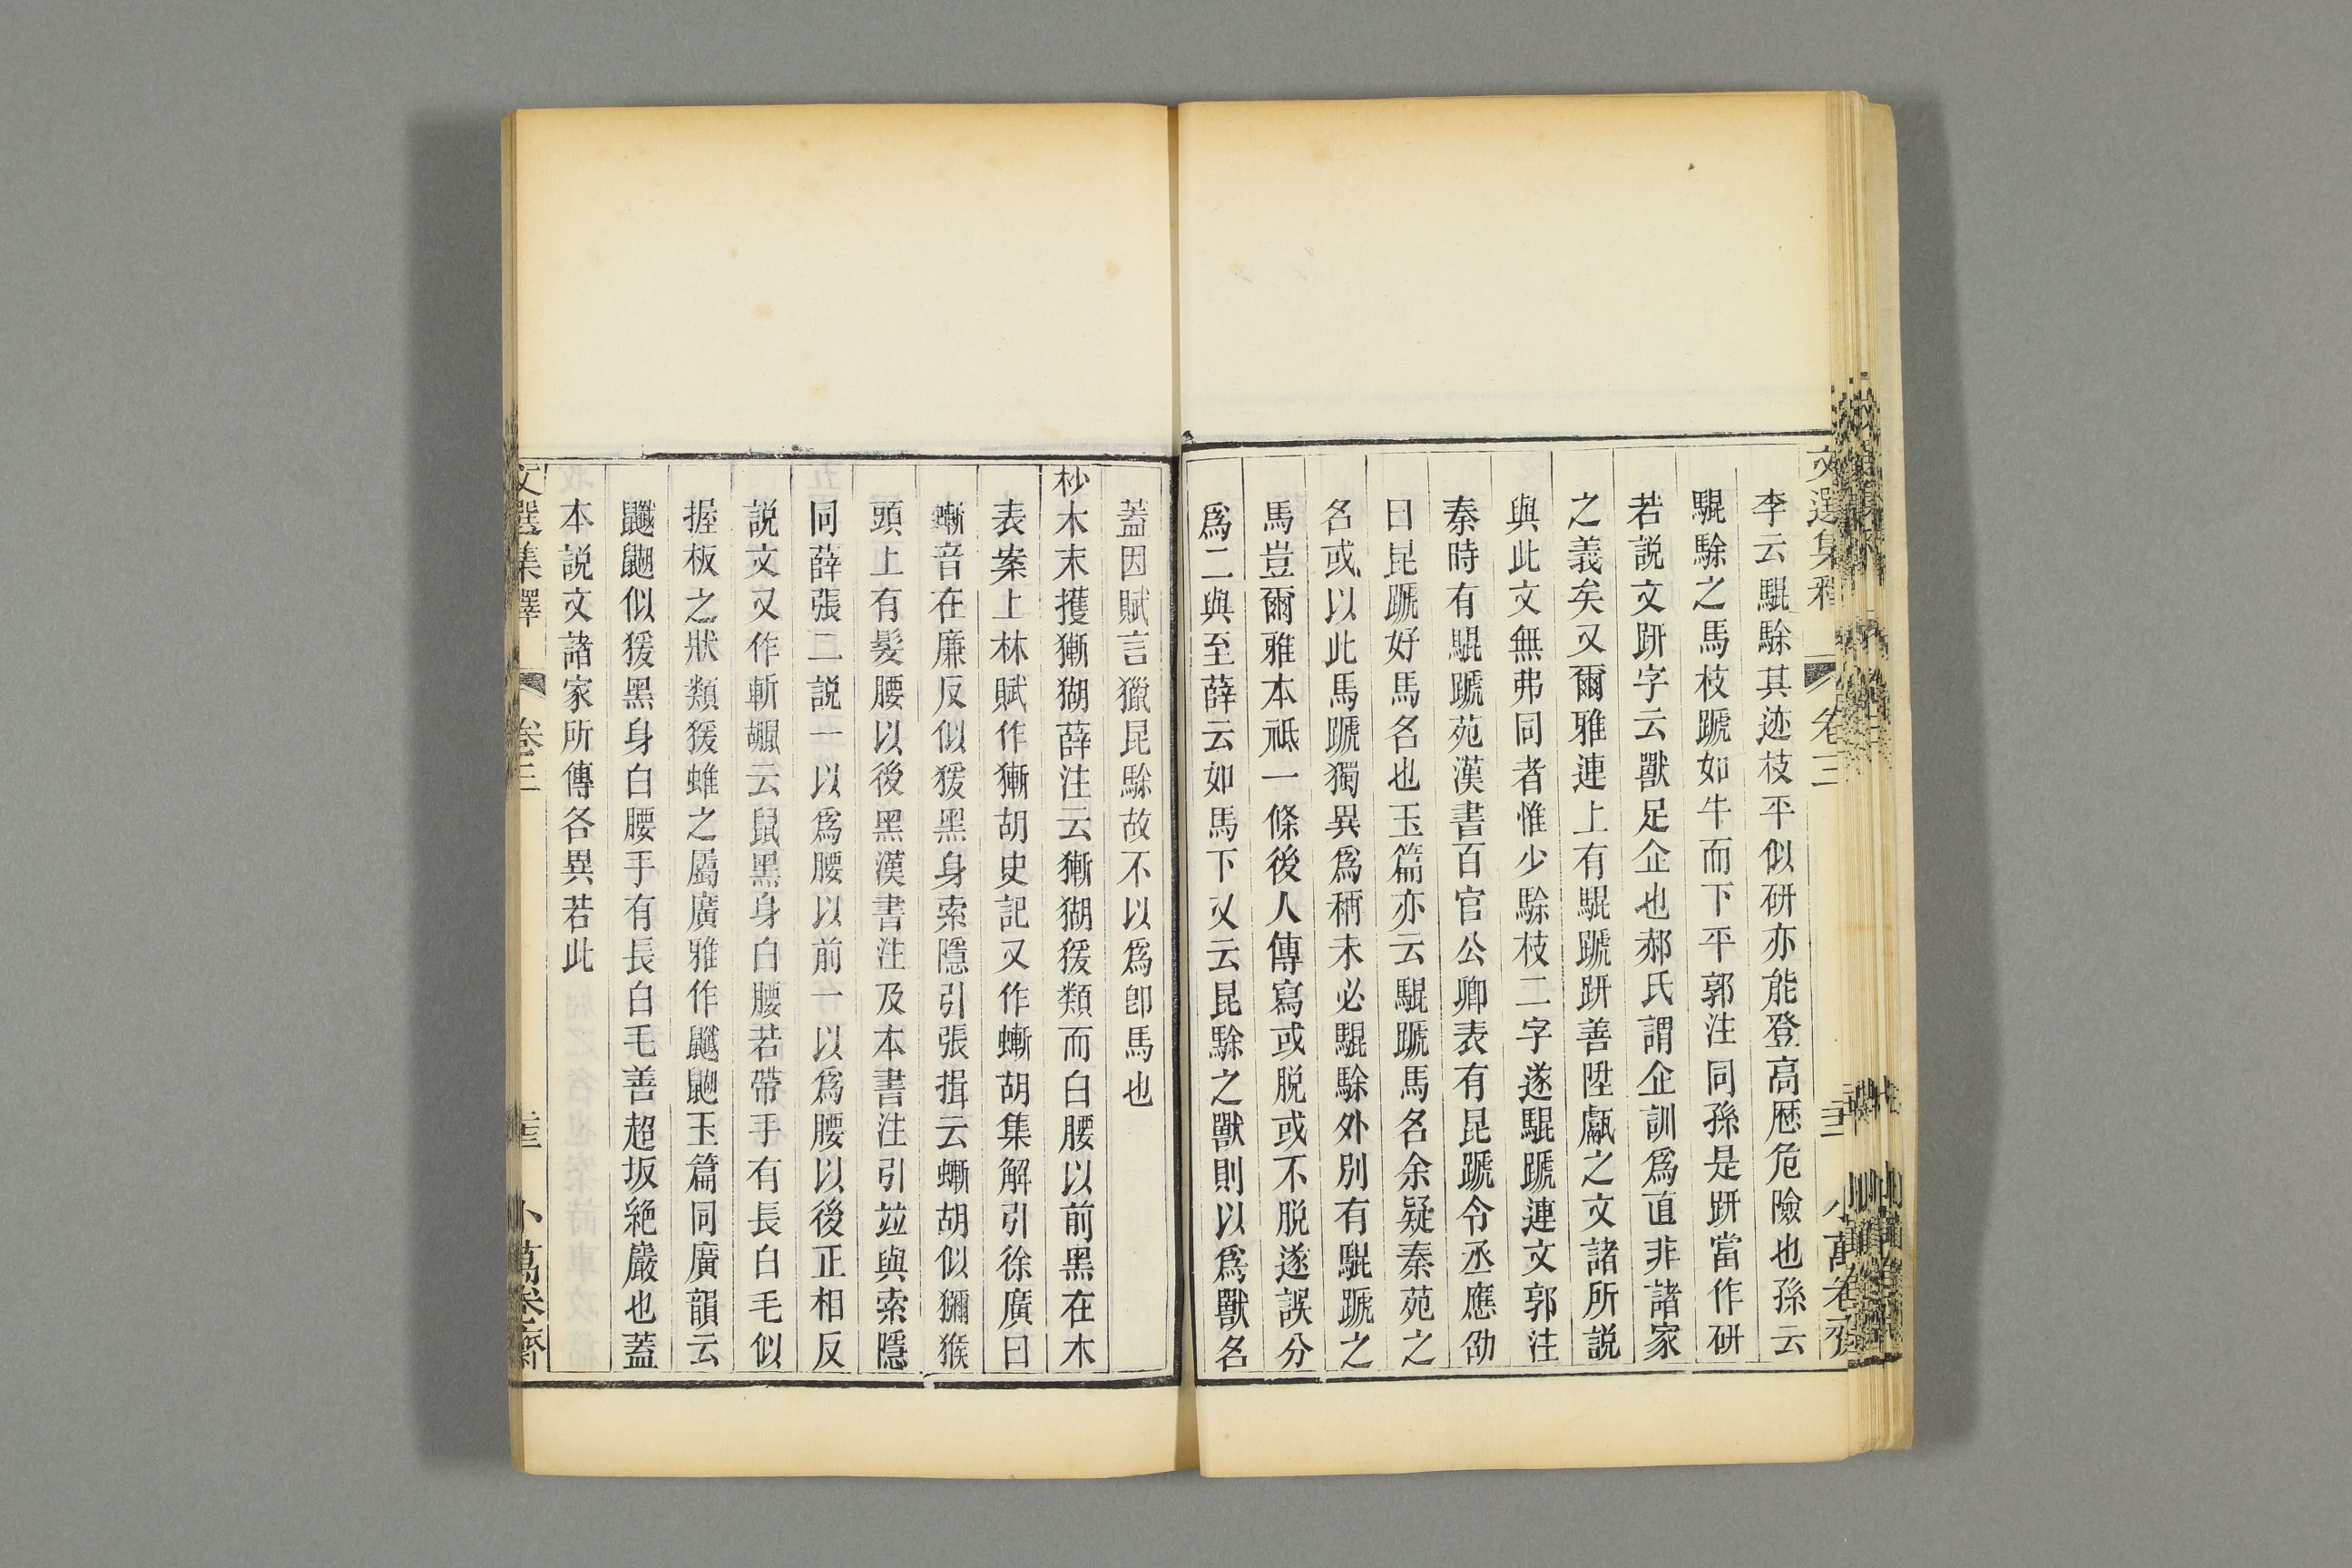 文選集釋 卷三 小萬卷齋
李云騉駼其迹枝平似研亦能登高歷危險也孫云
騉駼之馬枝蹏如牛而下平郭注同孫是趼當作研
若說文趼字云獸足企也郝氏謂企訓爲直非諸家
之義矣又爾雅連上有騉蹏趼善陞甗之文諸所說
與此文無弗同者惟少駼枝二字遂騉蹏連文郭注
秦時有騉蹏苑漢書百官公卿表有昆蹏令丞應劭
曰昆蹏好馬名也玉篇亦云騉蹏馬名余疑秦苑之
名或以此馬蹏獨異爲稱未必騉駼外別有騉蹏之
馬豈爾雅本祗一條後人傳寫或脫或不脫遂誤分
爲二與至薛云如馬下又云昆駼之獸則以爲獸名
蓋因賦言獵昆駼故不以爲卽馬也
杪木末擭獑猢薛注云獑猢猨類而白腰以前黑在木
表案上林賦作獑胡史記又作螹胡集解引徐廣曰
螹音在廉反似猨黑身索隱引張揖云螹胡似獼猴
頭上有髮腰以後黑漢書注及本書注引竝與索隱
同薛張二說一以爲腰以前一以爲腰以後正相反
說文又作斬𪕱云鼠黑身白腰若帶手有長白毛似
握板之狀類猨蜼之屬廣雅作䶫䶉玉篇同廣韻云
䶫䶉似猨黑身白腰手有長白毛善超坂絶巖也蓋
本說文諸家所傳各異若此
文選集釋 卷三 小萬卷齋